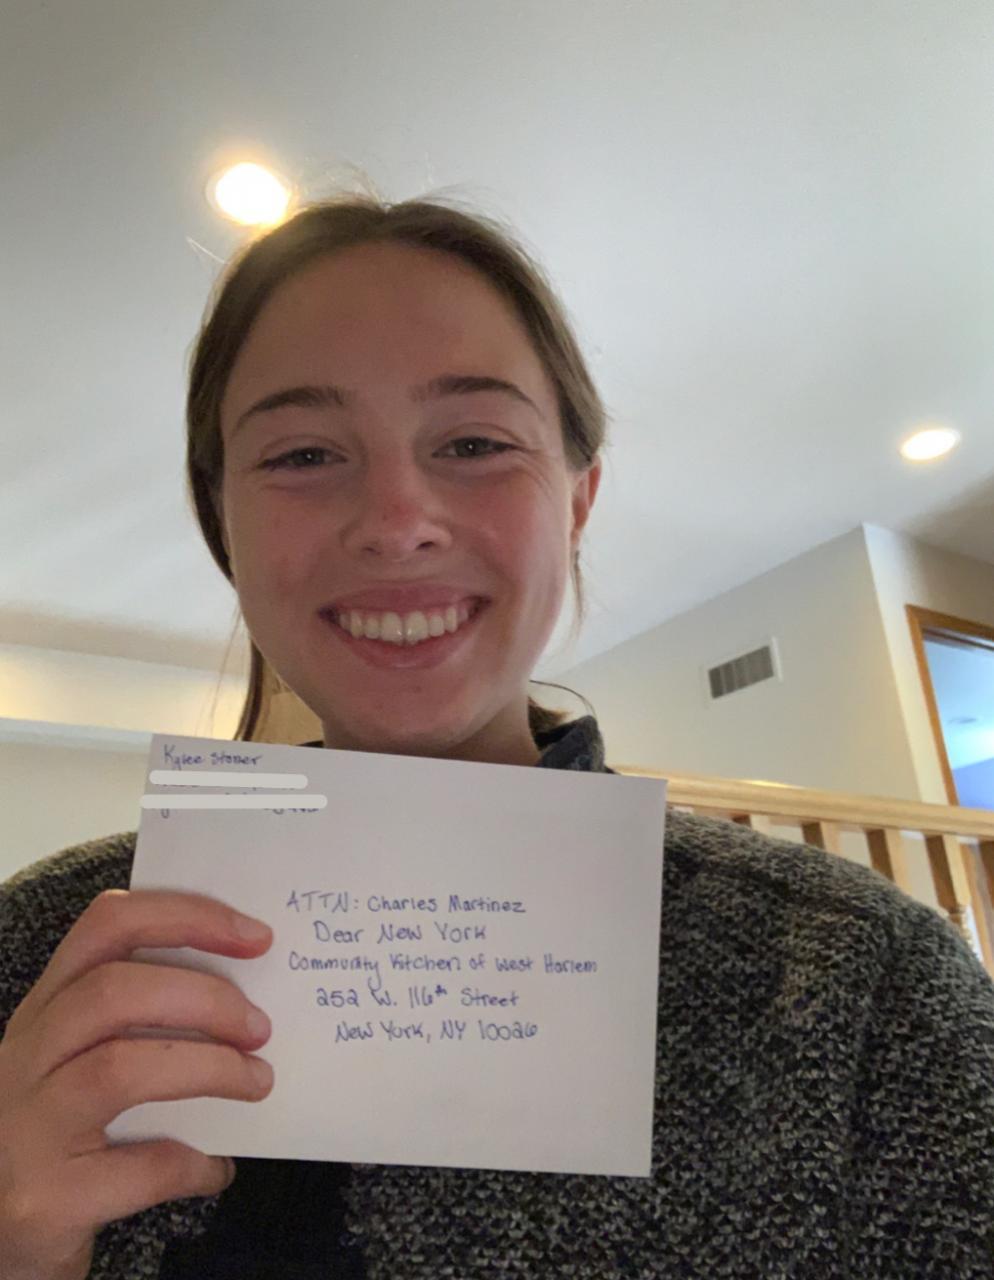 Kylee Stoner
ATTN: Charles Martinez
Dear New York
Community Kitchen of West Harlem
252 W. 116th Street
New York, NY 10026